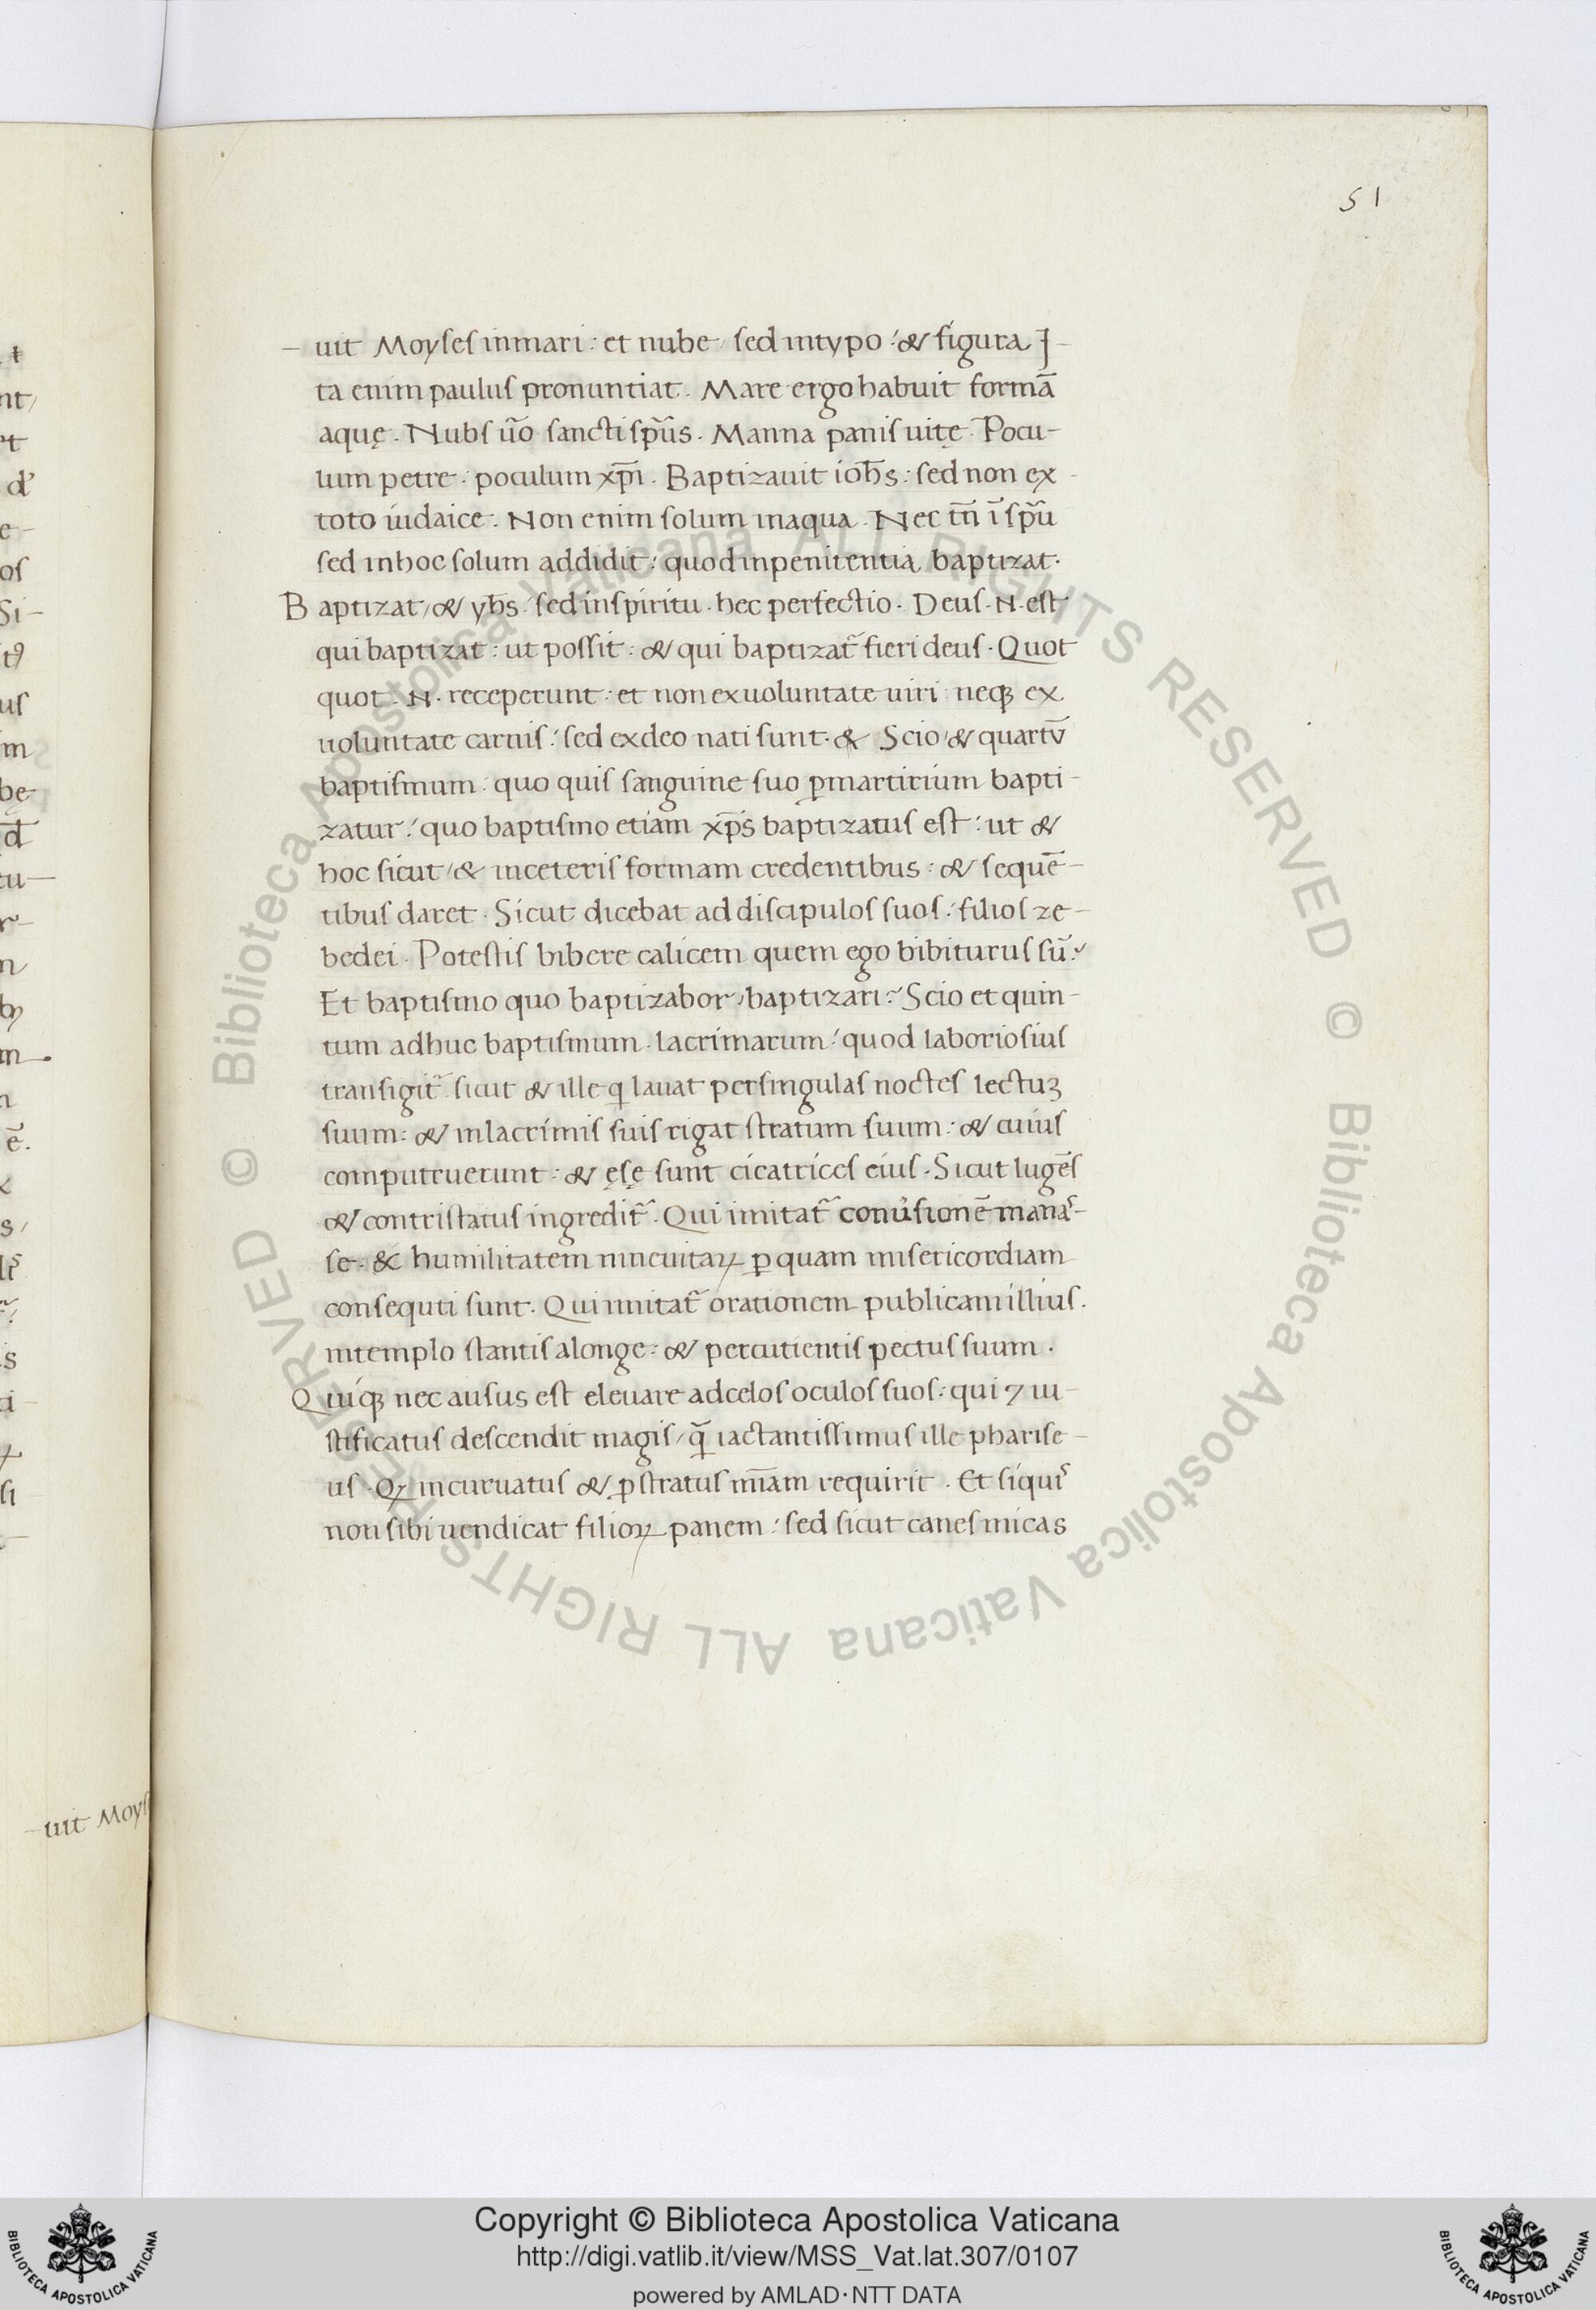 51
– uit Moyses in mari : et nube / sed in typo : & figura J–
ta enim paulus pronuntiat . Mare ergo habuit formā
aquę . Nubs ūo sancti sp̄us . Manna panis uitę . Pocu–
lum petre : poculum xp̄i . Baptizauit ioh̄s : sed non ex
toto iudaice . Non enim solum in aqua . Nec tn̄ ī sp̄u
sed in hoc solum addidit : quod in penitentia baptizat .
Baptizat / & yh̄s / sed in spiritu . hec perfectio . Deus . N . est
qui baptizat : ut possit : & qui baptizat᷑ fieri deus . Quot
quot . N . receperunt : et non ex uoluntate uiri : neqꝫ ex
uoluntate carnis : sed ex deo nati sunt . & Scio / & quartū
baptismum : quo quis sanguine suo ꝑ martirium bapti–
zatur : quo baptismo etiam xp̄s baptizatus est : ut &
hoc sicut / & in ceteris formam credentibus : & sequē–
tibus daret . Sicut dicebat ad discipulos suos : filios ze–
bedei . Potestis bibere calicem quem ego bibiturus sū ?
Et baptismo quo baptizabor / baptizari ? Scio et quin–
tum adhuc baptismum . lacrimarum : quod laboriosius
transigit᷑ . sicut & ille q lauat per singulas noctes lectuꝫ
suum : & in lacrimis suis rigat stratum suum : & cuius
computruerunt : & ęsę sunt cicatrices eius . Sicut lugēs
& contristatus ingredit᷑ . Qui imitat᷑ conu̓sionē manas–
se . & humilitatem nineuitaꝝ ꝑ quam misericordiam
consequti sunt . Qui imitat᷑ orationem publicam illius .
in templo stantis a longe : & percutientis pectus suum .
Quiqꝫ nec ausus est eleuare ad celos oculos suos : qui ⁊ iu–
stificatus descendit magis / q̄ iactantissimus ille pharise–
us . Qꝝ incuruatus & ꝓstratus mīam requirit . Et siquis
non sibi uendicat filioꝝ panem : sed sicut canes micas
– uit Moys
© Biblioteca Apostolica Vaticana ALL RIGHTS RESERVED © Biblioteca Apostolica Vaticana ALL RIGHTS RESERVED
Copyright © Biblioteca Apostolica Vaticana
http://digi.vatlib.it/view/MSS_Vat.lat.307/0107
powered by AMLAD·NTT DATA
BIBLIOTECA APOSTOLICA VATICANA
BIBLIOTECA APOSTOLICA VATICANA